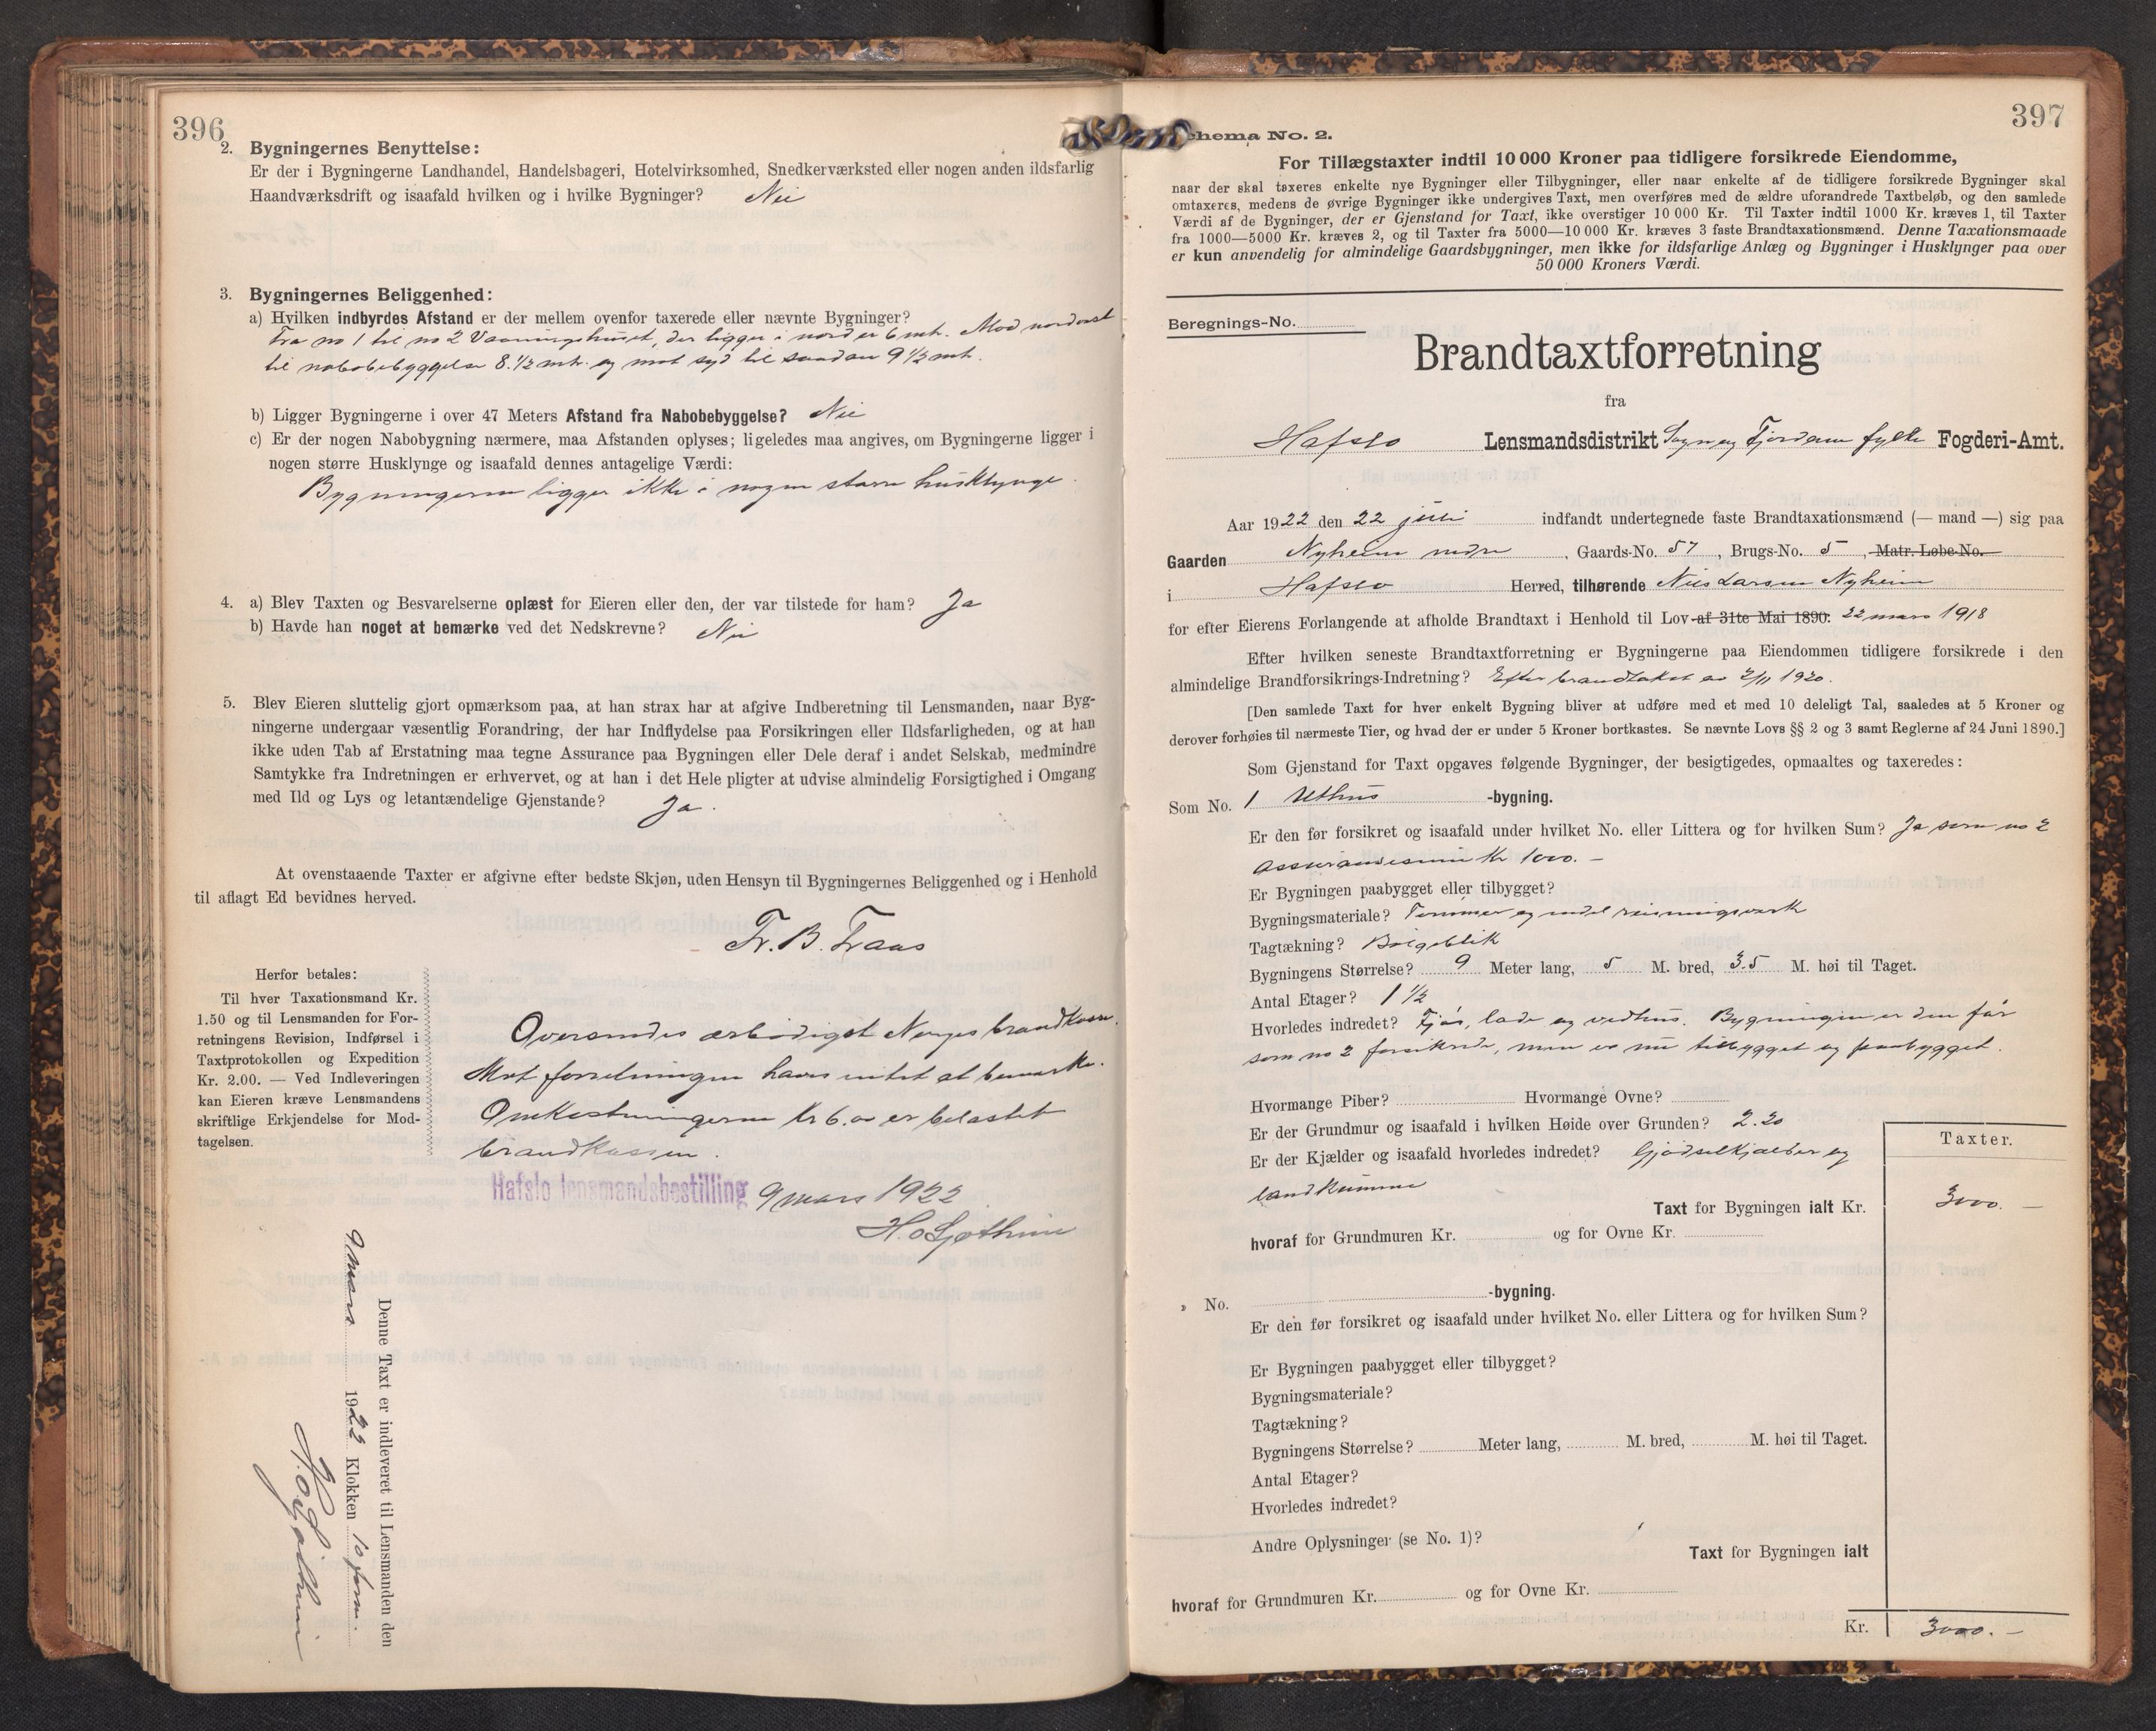 396
2. Bygningernes Benyttelse:
Er der i Bygningerne Landhandel, Handelsbageri, Hotelvirksomhed, Snedkerværksted eller nogen anden ildsfarlig
Haandværksdrift og isaafald hvilken og i hvilke Bygninger? Nei
3. Bygningernes Beliggenhed:
a) Hvilken indbyrdes Afstand er der mellem ovenfor taxerede eller nævnte Bygninger?
Fra no 1 til no 2 Vaaningshuset, der ligger i nord er 6 mtr. Mod nordost
til nabobebyggelse 8.½ mtr. og mot syd til saadan 9½ mtr.
b) Ligger Bygningerne i over 47 Meters Afstand fra Nabobebyggelse? Nei
c) Er der nogen Nabobygning nærmere, maa Afstanden oplyses; ligeledes maa angives, om Bygningerne ligger i
nogen større Husklynge og isaafald dennes antagelige Værdi:
Bygningerne ligger ikke i nogen større husklynge.
4. a) Blev Taxten og Besvarelserne oplæst for Eieren eller den, der var tilstede for ham? Ja
b) Havde han noget at bemærke ved det Nedskrevne? Nei
5. Blev Eieren sluttelig gjort opmærksom paa, at han strax har at afgive Indberetning til Lensmanden, naar Byg-
ningerne undergaar væsentlig Forandring, der har Indflydelse paa Forsikringen eller Ildsfarligheden, og at han
ikke uden Tab af Erstatning maa tegne Assurance paa Bygningen eller Dele deraf i andet Selskab, medmindre
Samtykke fra Indretningen er erhvervet, og at han i det Hele pligter at udvise almindelig Forsigtighed i Omgang
med Ild og Lys og letantændelige Gjenstande? Ja.
At ovenstaaende Taxter er afgivne efter bedste Skjøn, uden Hensyn til Bygningernes Beliggenhed og i Henhold
til aflagt Ed bevidnes herved.
Fr. B. Fraas
Herfor betales:
Til hver Taxationsmand Kr.
1.50 og til Lensmanden for For-
retningens Revision, Indførsel i
Taxtprotokollen og Expedition
Kr. 2.00. — Ved Indleveringen
kan Eieren kræve Lensmandens
skriftlige Erkjendelse for Mod-
tagelsen.
Oversendes ærbødigst Norges brandkasse.
Mot forretningen haves intet at bemærke.
Omkostningerne kr 6.00 er belastet
brandkassen.
Hafslo lensmandsbestilling 9 mars 1922
Denne Taxt er indleveret til Lensmanden den
9 mars 1922 Klokken 10 form.
397
chema No. 2.
For Tillægstaxter indtil 10 000 Kroner paa tidligere forsikrede Eiendomme,
naar der skal taxeres enkelte nye Bygninger eller Tilbygninger, eller naar enkelte af de tidligere forsikrede Bygninger skal
omtaxeres, medens de øvrige Bygninger ikke undergives Taxt, men overføres med de ældre uforandrede Taxtbeløb, og den samlede
Værdi af de Bygninger, der er Gjenstand for Taxt, ikke overstiger 10 000 Kr. Til Taxter indtil 1000 Kr. kræves 1, til Taxter
fra 1000—5000 Kr. kræves 2, og til Taxter fra 5000—10 000 Kr. kræves 3 faste Brandtaxationsmænd. Denne Taxationsmaade
er kun anvendelig for almindelige Gaardsbygninger, men ikke for ildsfarlige Anlæg og Bygninger i Husklynger paa over
50 000 Kroners Værdi.
Beregnings-No.
Brandtaxtforretning
fra
Hafslo Lensmandsdistrikt Sogn og Fjordane fylke Fogderi-Amt.
Aar 1922 den 22 juli indfandt undertegnede faste Brandtaxationsmænd (— mand —) sig paa
Gaarden Nyheim nedre, Gaards-No. 57, Brugs-No. 5, Matr. Løbe-No.
i Hafslo Herred, tilhørende Nils Larsen Nyheim
for efter Eierens Forlangende at afholde Brandtaxt i Henhold til Lov af 31te Mai 1890. 22 mars 1918
Efter hvilken seneste Brandtaxtforretning er Bygningerne paa Eiendommen tidligere forsikrede i den
almindelige Brandforsikrings-Indretning? Efter brandtakst av 2/11 1920.
[Den samlede Taxt for hver enkelt Bygning bliver at udføre med et med 10 deleligt Tal, saaledes at 5 Kroner og
derover forhøies til nærmeste Tier, og hvad der er under 5 Kroner bortkastes. Se nævnte Lovs §§ 2 og 3 samt Reglerne af 24 Juni 1890.]
Som Gjenstand for Taxt opgaves følgende Bygninger, der besigtigedes, opmaaltes og taxeredes:
Som No. 1 Uthus -bygning.
Er den før forsikret og isaafald under hvilket No. eller Littera og for hvilken Sum? Ja som no 2
Assurancesum Kr 1000.—
Er Bygningen paabygget eller tilbygget?
Bygningsmateriale? Tømmer og endel reisningsverk
Tagtækning? Bølgeblik
Bygningens Størrelse? 9 Meter lang, 5 M. bred, 3.5 M. høi til Taget.
Antal Etager? 1 ½
Hvorledes indredet? Fjøs, lade og vedhus. Bygningen er den før
som no 2 forsikrede, men er nu tilbygget og paabygget.
Hvormange Piber? Hvormange Ovne?
Er der Grundmur og isaafald i hvilken Høide over Grunden? 2.20
Er der Kjælder og isaafald hvorledes indredet? Gjødselkjælder og
landkumme
Taxter.
Taxt for Bygningen ialt Kr. 3000.—
hvoraf for Grundmuren Kr. og for Ovne Kr.
» No. -bygning.
Er den før forsikret og isaafald under hvilket No. eller Littera og for hvilken Sum?
Er Bygningen paabygget eller tilbygget?
Bygningsmateriale?
Tagtækning?
Bygningens Størrelse? Meter lang, M. bred, M. høi til Taget.
Antal Etager?
Hvorledes indredet?
Andre Oplysninger (se No. 1)?
Taxt for Bygningen ialt
hvoraf for Grundmuren Kr. og for Ovne Kr.
Kr. 3000.—